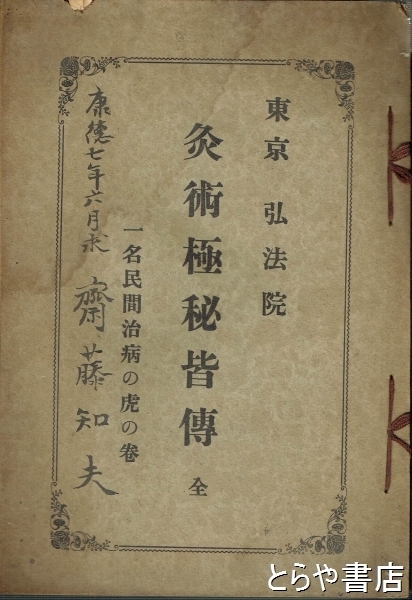 東京 弘法院
灸術極秘皆傳 全
一名民間治病の虎の巻
康徳七年六月求 齋藤知夫
とらや書店